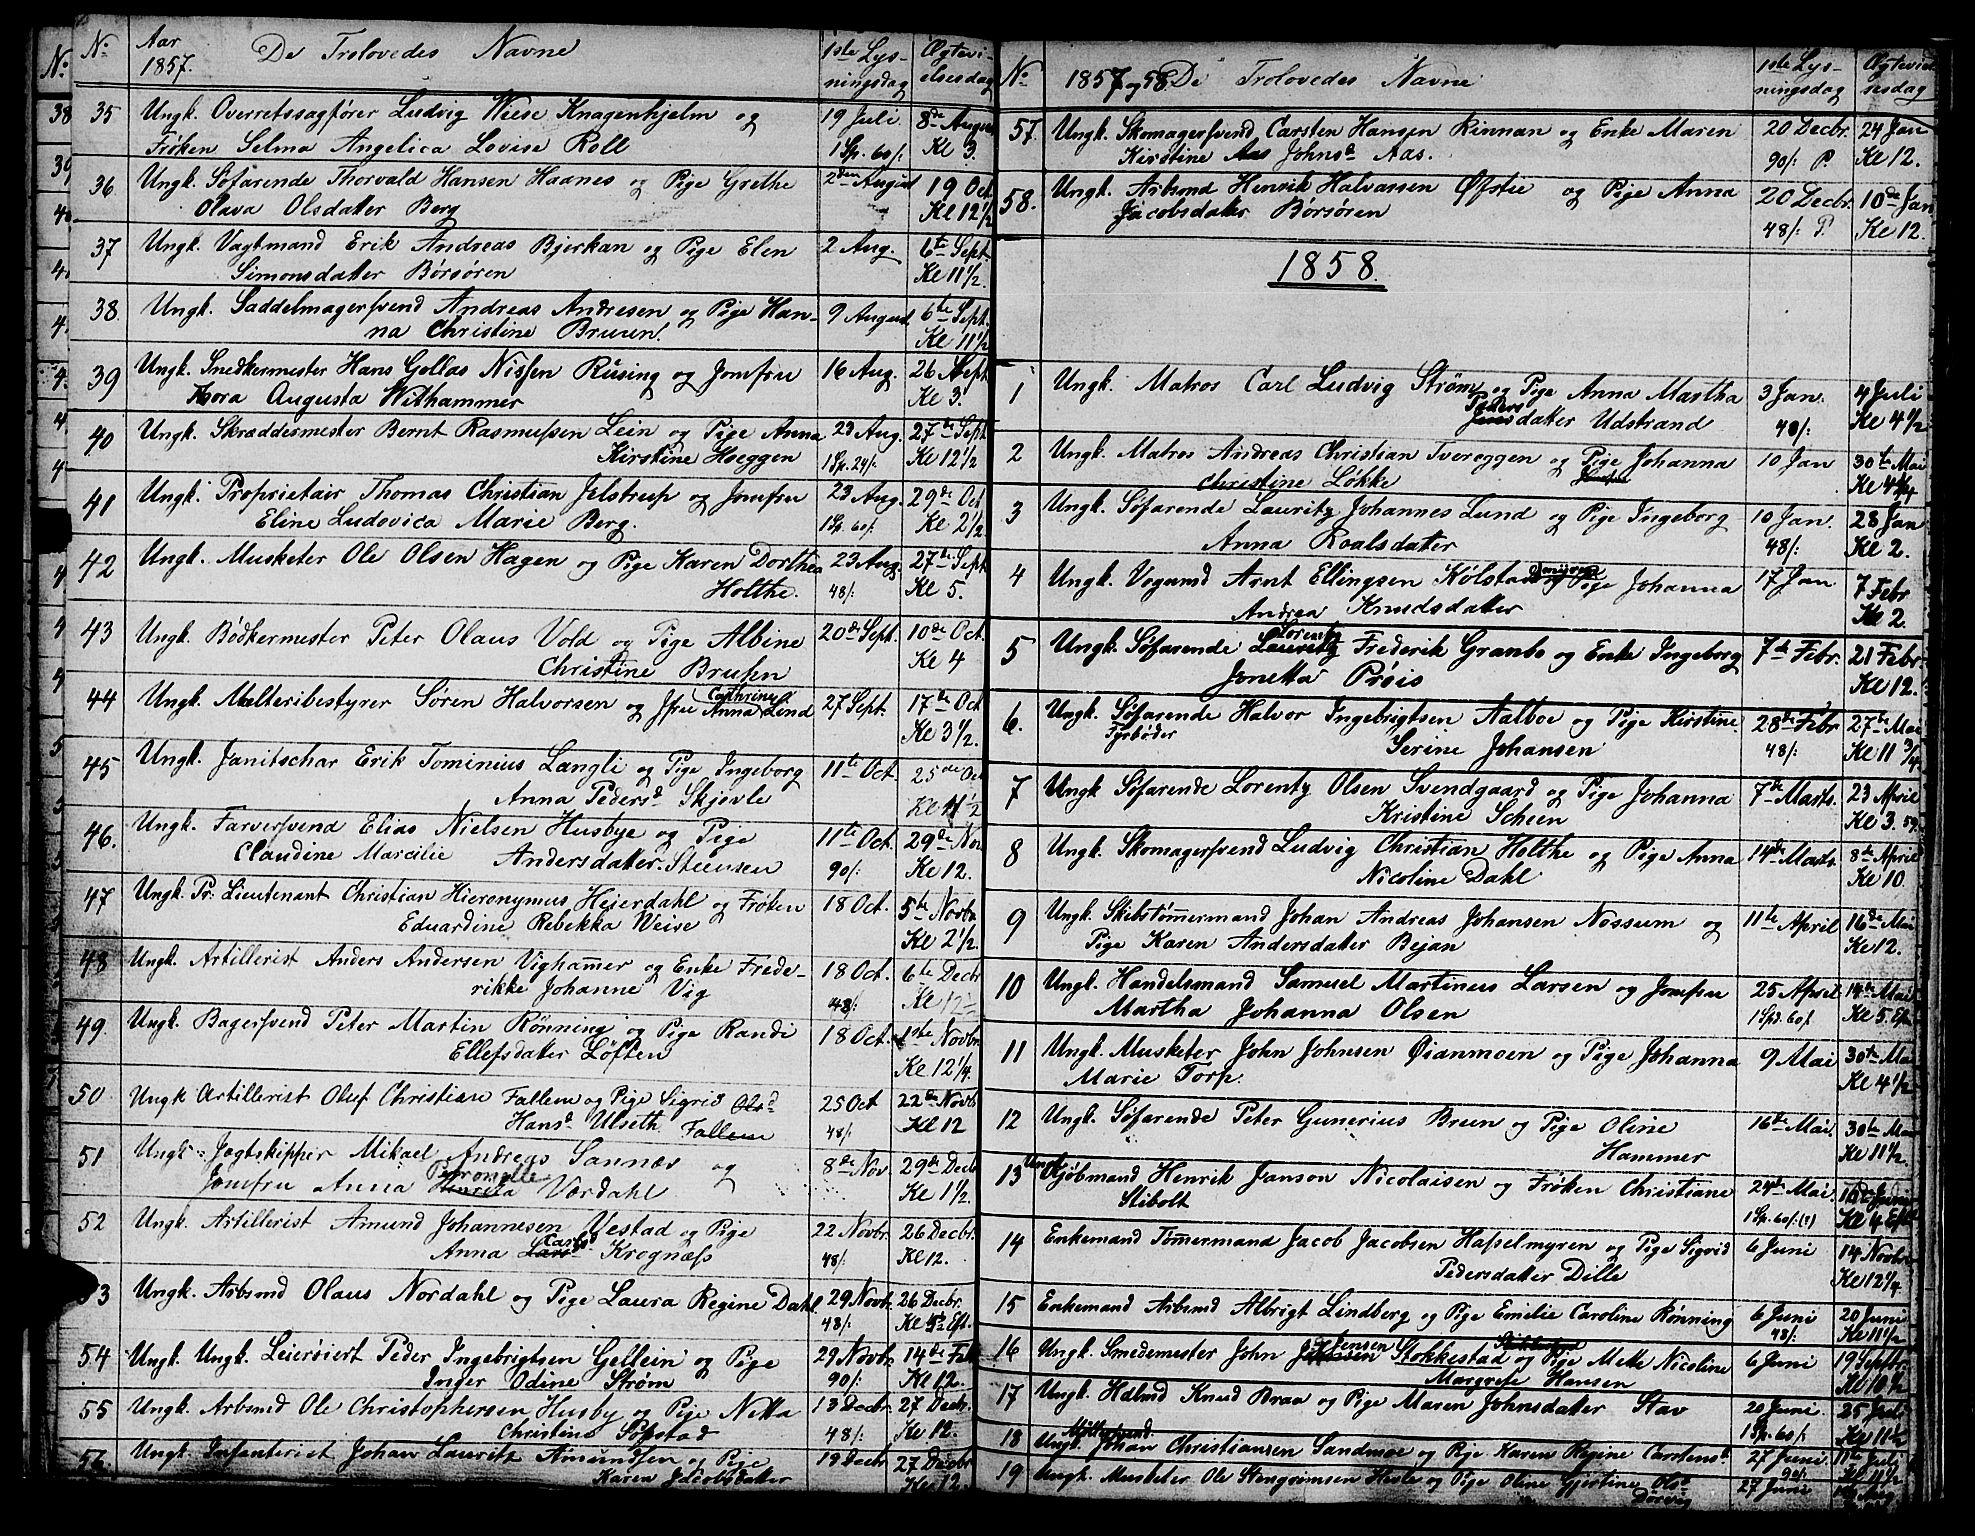 No
Aar 1857. De Trolovedes Navne
1ste Lysningsdag
Ægtevielsesdag
35 Ungk. Overretssagfører Ludvig Wiese Knagenhjelm og 19 Juli 8de August
Frøken Selma Angelica Lovise Roll 1 Sp. 60/: Kl 3.
36 Ungk. Søfarende Thorvald Hansen Haanes og Pige Grethe 2den August 19 Oct.
Olava Olsdatter Berg Kl 12 1/2
37 Ungk. Vagtmand Erik Andreas Bjerkan og Pige Elen 2 Aug. 6te Sept.
Simonsdatter Børsøren Kl 11 1/2.
38. Ungk. Saddelmagersvend Andreas Andresen og Pige Han- 9 August 6te Sept.
na Christine Bruun. Kl 11 1/2
39 Ungk. Snedkermester Hans Gellas Nissen Rüsing og Jomfru 16 Aug. 26 Sept
Thora Augusta Withammer Kl 3.
40 Ungk. Skræddermester Bernt Rasmussen Lein og Pige Anna 23 Aug. 27de Sept
Kirstine Hoeggen 1 Sp. 24/: Kl 12 1/2
41 Ungk. Proprietair Thomas Christian Jelstrup og Jomfru 23 Aug. 29de Oct
Eline Ludovica Marie Berg. 1 Sp. 60/. Kl 2 1/2
42 Ungk. Musketer Ole Olsen Hagen og Pige Karen Dorthea 23 Aug. 27de Sept
Holthe. 48/: Kl 5.
43 Ungk. Bødkermester Peter Olaus Vold og Pige Albine 20de Sept. 10de Oct.
Christine Brusen Kl 4
44 Ungk. Malteribestyrer Søren Halvorsen og Jfru Anna Cathrine Lind 27 Sept. 17de Oct
Kl 3 1/2.
45 Ungk. Janitschar Erik Tominius Langli og Pige Ingeborg 11te Oct. 25de Oct
Anna Pedersd Skjevle Kl 11 1/2
46. Ungk. Farversvend Elias Nielsen Husbye og Pige 11te Oct. 29de Nov
Claudine Marcilie Andersdatter Steensen 90/: Kl 12.
47 Ungk. Pr: Lieutenant Christian Hieronymus Heierdahl og Frøken 18 Oct. 5te Novbr
Eduardine Rebekka Weise Kl 2 1/2.
48 Ungk. Artillerist Anders Andersen Vighammer og Enke Frede- 18 Oct. 6te Decbr
rikke Johanne Vig 48/: Kl 12
49. Ungk. Bagersvend Peter Martin Rønning og Pige Rande 18 Oct. 1ste Novbr.
Ellefsdatter Løften Kl 12 1/4.
50 Ungk Artillerist Oluf Christian Fallem og Pige Sigrid Olsd 25 Oct 22de Novb
Hansd Ulseth Fallem 48/: Kl 12
51 Ungk. Jagtskipper Mikael Andreas Sannæs og 8de Nov 29de Decbr
Jomfru Anna Petronelle Værdahl Kl 1 1/2.
52 Ungk. Artillerist Amund Johannesen Vestad og Pige 22 Novbr. 26 Decbr.
Anna Larsd Carlsd Krognæss 48/: Kl 12.
53 Ungk. Arbsmd Olaus Nordahl og Pige Laura Regine Dahl 29 Novbr. 26 Decbr.
48/: Kl 5 Ef.
54 Ungk. Ungk. Leierøiert Peder Ingebrigtsen Gellein og Pige 29 Novbr 14de Feb
Inger Odine Strøm 90/: Kl 12.
55 Ungk. Arbsmd Ole Christophersen Husby og Pige Netta 13 Decbr. 27 Decbr.
Christine Sopstad 48/: Kl 12.
56 Ungk. Infanterist Johan Lauritz Amundsen og Pige 19 Decbr 27 Decbr
Karen Jacobsdatter Kl 12.
No 1857 og 58. De Trolovedes Navne
1ste Lysningsdag
57. Ungk. Skomagersvend Carsten Hansen Rinnan og Enke Maren 20 Decbr. 24 Jan
Kirstine Aas Johnsd Aas. 90/: P. Kl 12.
58. Ungk. Arbsmd Henrik Halvassen Øfstie og Pige Anna 20 Decbr. 10de Jan
Jacobsdatter Børsøren 48/: P. Kl 12.
1858.
1 Ungk. Matros Carl Ludvig Strøm og Pige Anna Martha 3 Jan. 4 Juli
Peders Jensdatter Udstrand 48/: Kl 4 1/2
2 Ungk. Matros Andreas Christian Tvereggen og Pige Johanna 10 Jan 30te Mai
Christine Løkke
3 Ungk. Søfarende Lauritz Johannes Lund og Pige Ingeborg 10 Jan. 28 Jan
Anna Roalsdatter 48/: Kl 2.
4 Ungk. Vognmd Arnt Ellingsen Kolstad og Pige Johanna 17 Jan 7 Febr.
Andrea Knudsdatter Kl 2.
5 Ungk. Søfarende Lauritz Lorentz Frederik Granbo og Enke Ingeborg 7de Febr. 21 Febr.
Jonetta Prøis Kl 12.
6. Ungk. Søfarende Halvor Ingebrigtsen Aalboe og Pige Kirstine 28de Febr 27de Mai
Fyrbøder Serine Johansen 48/: Kl 11 3/4
7 Ungk Søfarende Lorentz Olsen Svendgaard og Pige Johanna 7de Marts. 23 April
Kristine Scheen Kl 3. 59.
8 Ungk. Skomagersvend Ludvig Christian Holthe og Pige Anna 14de Marts 8de April
Nicoline Dahl Kl 10.
9 Ungk. Skibstømmermand Johan Andreas Johansen Nossum og 11te April 16de Mai
Pige Karen Andersdatter Bejan Kl 12.
10 Ungk. Handelsmand Samuel Martinus Larsen og Jomfru 25 April 14de Mai
Martha Johanna Olsen 1 Spd. 60/ Kl 5. Ef
11 Ungk. Musketer John Johnsen Øianmoen og Pige Johanna 9 Mai 30te Mai
Marie Torp. Kl 4 1/2
12 Ungk. Søfarende Peter Gunerius Brun og Pige Oline 16de Mai. 30te Mai
Hammer Kl 11 1/2.
13 Kjøbmand Henrik Janson Nicolaisen og Frøken Christiane 24de Mai.
Stibolt 1 Sp. 60/: Kl 4 Eft
14 Enkemand Tømmermand Jacob Jacobsen Hasselmyren og Pige Sigrid 6 Juni 14 Novbr
Pedersdatter Dille Kl 12 1/4
15 Enkemand Arbsmd Albrigt Lindberg og Pige Emilie Caroline Rønning 6 Juni 20 Juni
48/: Kl 11 1/2
16 Ungk. Smedemester John Jensen Stokkestad og Pige Mette Nicoline 6 Juni 19 Septbr
Margrete Hansen Kl 10 1/2
17 Ungk. Hdlmd Knud Braa og Pige Maren Johnsdatter Stav 20 Juni. 25 Juli
1 Sp. 60/. Kl 11 1/2
18 Ungk. Johan Christiansen Sandmoe og Pige Karen Regine Carstensd 27 Juni 11te Juli
90/: Kl 11 1/2
19 Ungk. Musketer Ole Stengrimsen Hesle og Pige Oline Gjertine Olsd 27 Juni